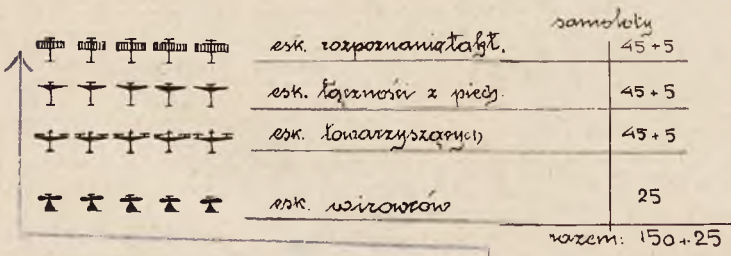 samoloty
esk. rozpoznania takt. 45+5
esk. łączności z piech. 45+5
esk. towarzyszących 45+5
esk. wirowców 25
razem: 150+25